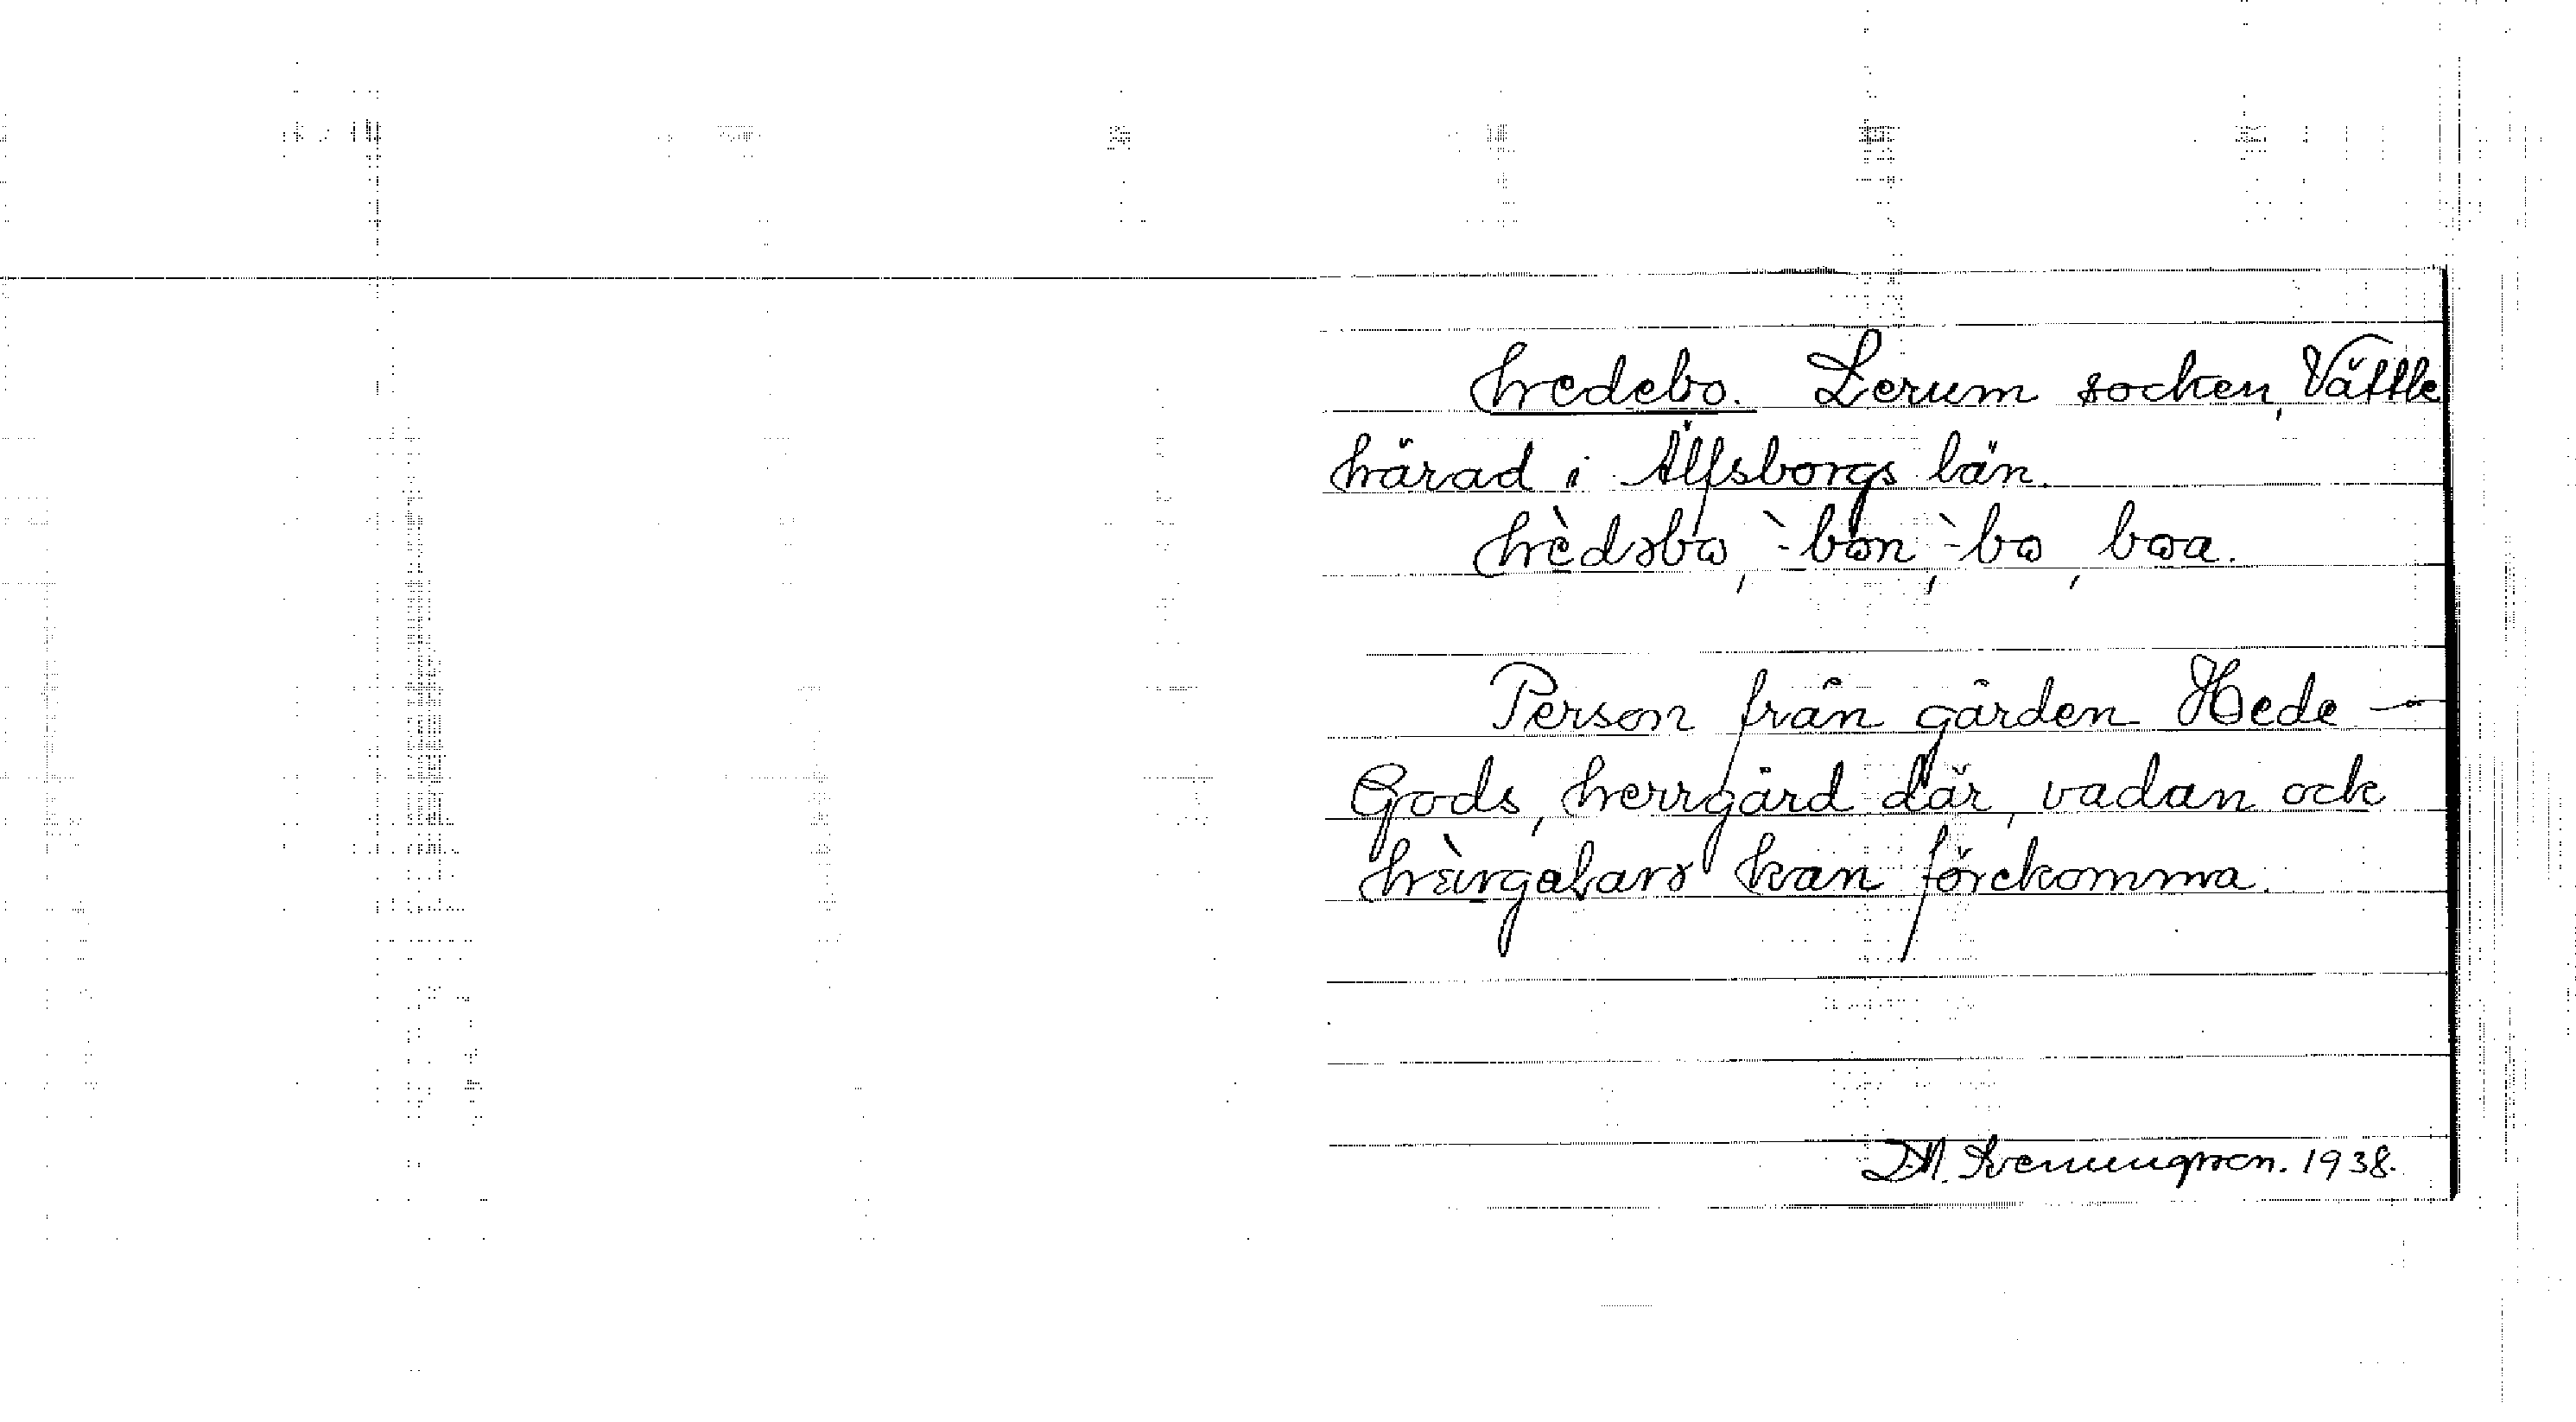 hedebo. Lerum socken, Vättle
härad i Älfsborgs län.
hèdəbɷ, `-bɷn, `-bɷ, bɷa.
Person från gården Hede –
Gods, herrgård där, vadan ock
kan förekomma.
1938.